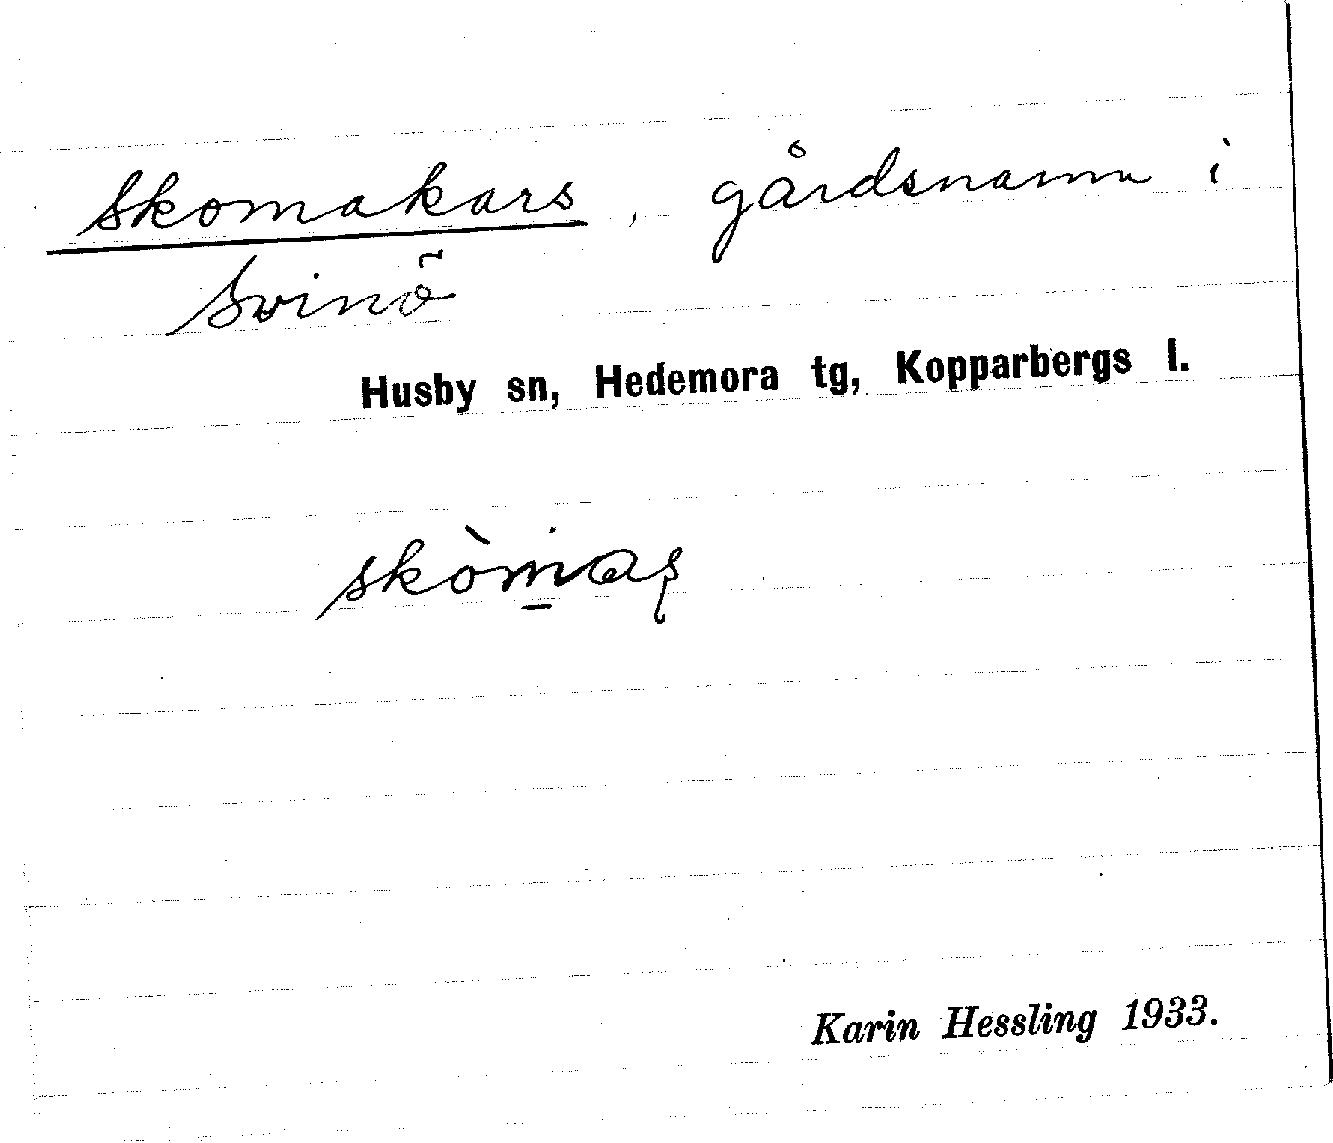 Skomakars, gårdsnamn i
Svinö
Husby sn, Hedemora tg, Kopparbergs l.
skòmaʂ
Karin Hessling 1933.